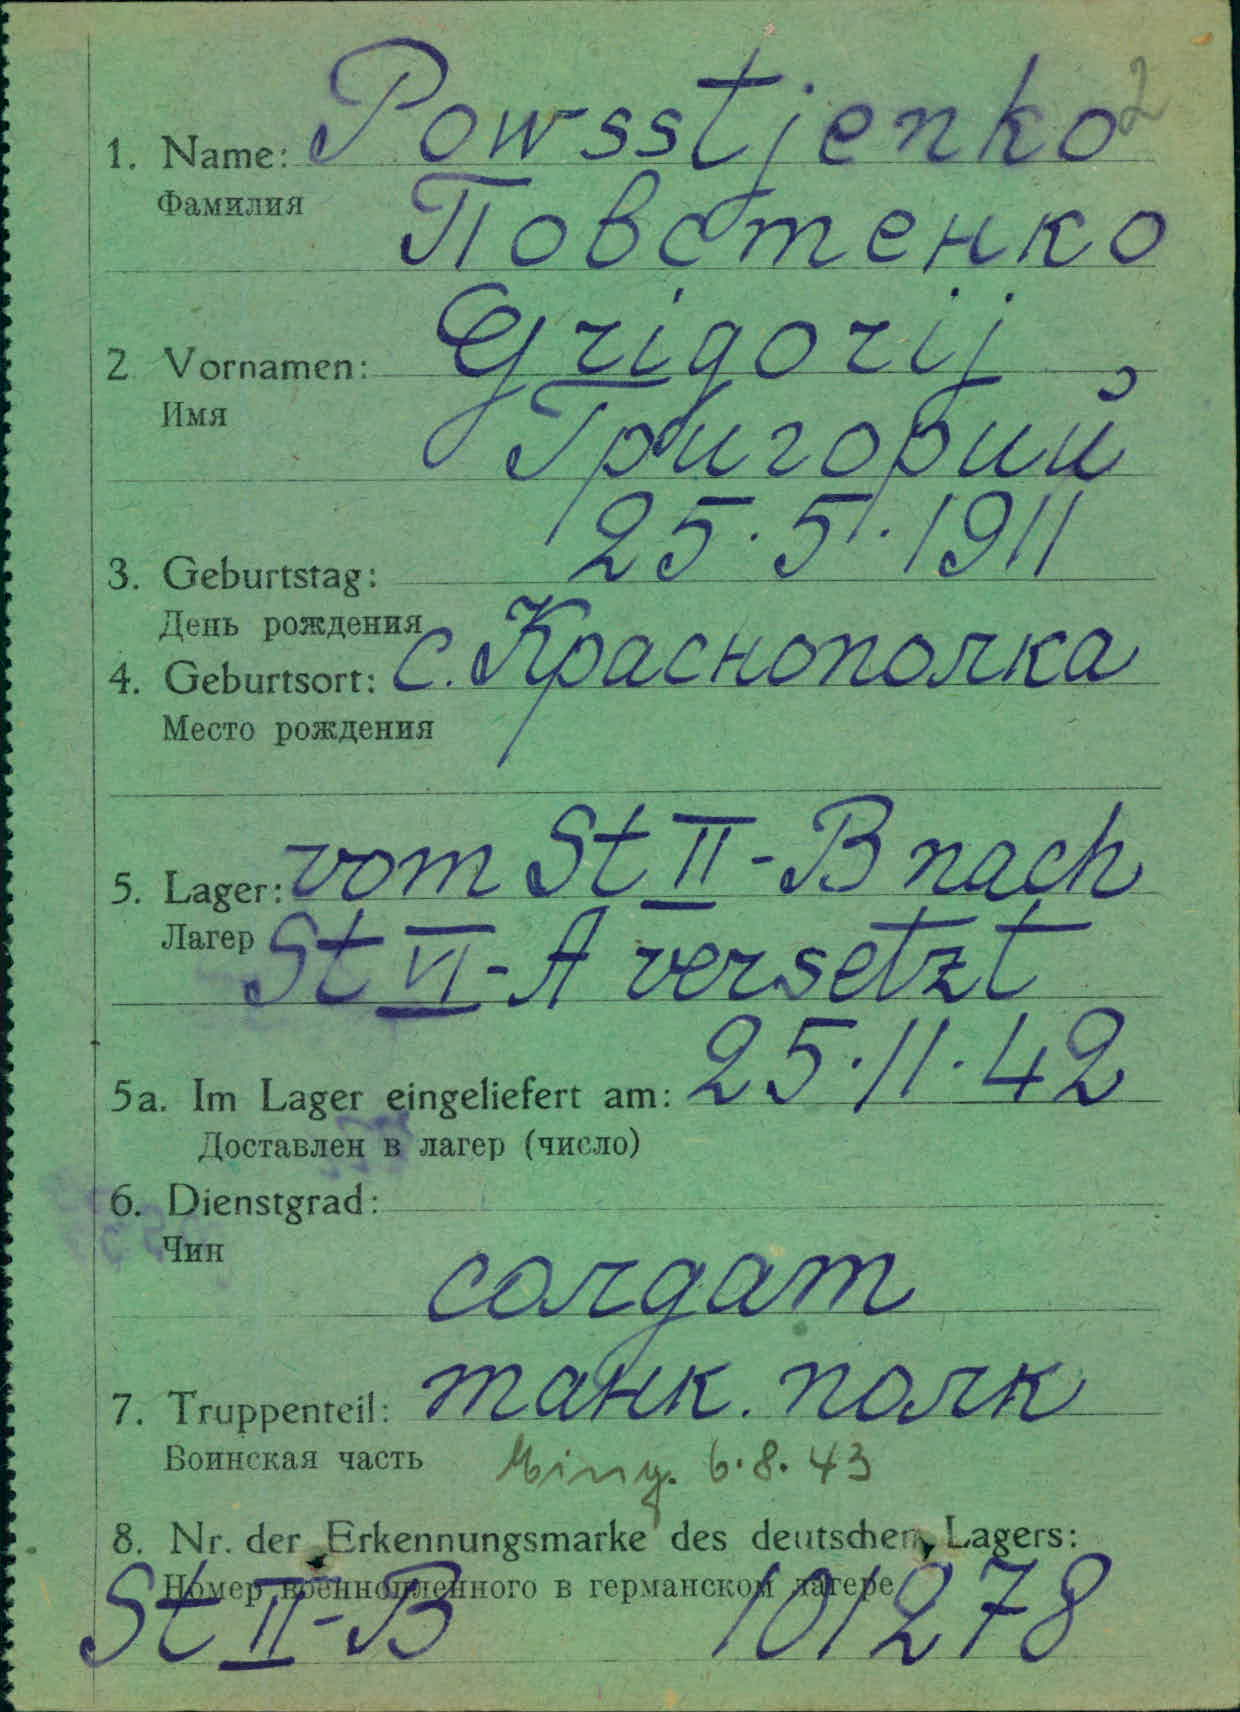 2
1. Name: Powsstjenko
Фамилия
Повстенко
2 Vornamen: Grigorij
Имя
Григорий
25.5.1911
3. Geburtstag:
День рождения
4. Geburtsort: с. Краснополка
Место рождения
5. Lager: vom St II-B nach
Лагер St VI-A versetzt
5a. Im Lager eingeliefert am: 25.11.42
Доставлен в лагер (число)
6. Dienstgrad:
Чин
солдат
7. Truppenteil: танк. полк
Воинская часть
6.8.43
8. Nr. der Erkennungsmarke des deutschen Lagers:
Номер военнопленного в германском лагере
St II-B 101278